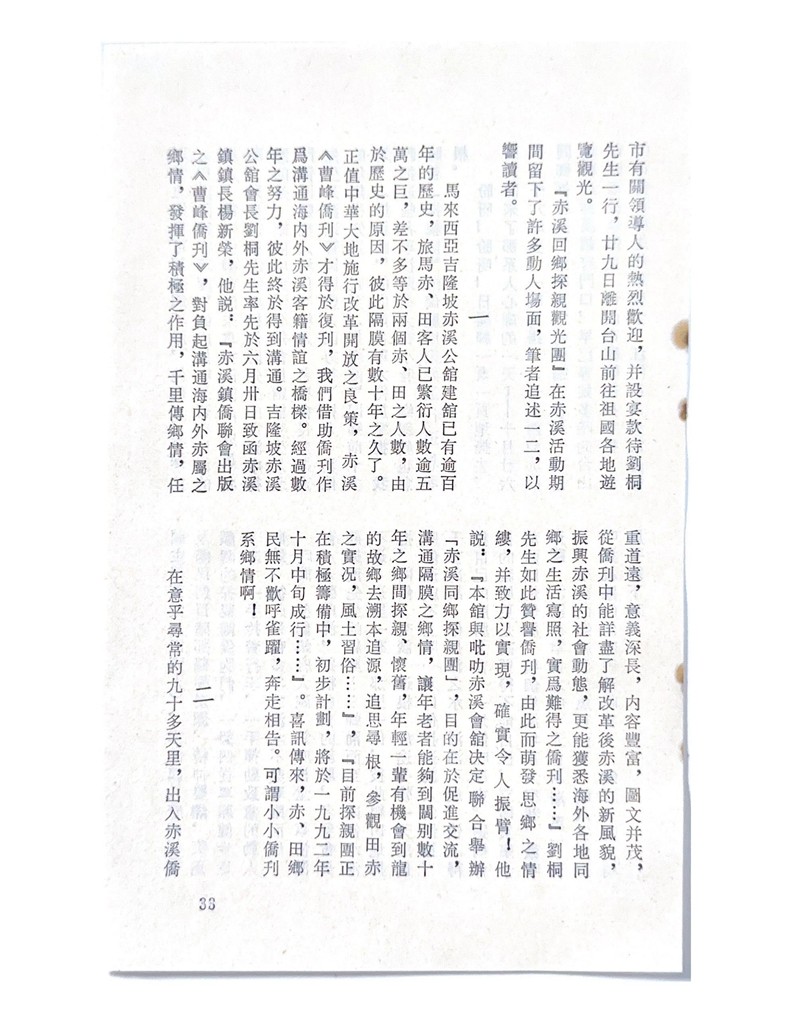 市有關領導人的熱烈歡迎，并設宴款待劉桐
先生一行，廿九日離開台山前往祖國各地遊
覽觀光。
『赤溪回鄉探親觀光團』在赤溪活動期
間留下了許多動人場面，筆者追述一二，以
響讀者。
一
馬來西亞吉隆坡赤溪公舘建舘已有逾百
年的歷史，旅馬赤、田客人已繁衍人數逾五
萬之巨，差不多等於兩個赤、田之人數，由
於歷史的原因，彼此隔膜有數十年之久了。
正值中華大地施行改革開放之良策，赤溪
《曹峰僑刊》才得於復刊，我們借助僑刊作
爲溝通海內外赤溪客籍情誼之橋樑。經過數
年之努力，彼此終於得到溝通。吉隆坡赤溪
公舘會長劉桐先生率先於六月卅日致函赤溪
鎮鎮長楊新榮，他説：『赤溪鎮僑聯會出版
之《曹峰僑刊》，對負起溝通海內外赤屬之
鄉情，發揮了積極之作用，千里傳鄉情，任
重道遠，意義深長，内容豐富，圖文并茂，
從僑刊中能詳盡了解改革後赤溪的新風貌，
振興赤溪的社會動態，更能獲悉海外各地同
鄉之生活寫照，實爲難得之僑刊……』劉桐
先生如此贊譽僑刊，由此而萌發思鄉之情
縷，并致力以實現，確實令人振臂！他
説：『本舘與吡叻赤溪會舘决定聯合舉辦
「赤溪同鄉探親團」，目的在於促進交流，
溝通隔膜之鄉情，讓年老者能夠到闊别數十
年之鄉間探親、懷舊，年輕一輩有機會到龍
的故鄉去溯本追源，追思尋根，參觀田赤
之實况，風土習俗……』，『目前探親團正
在積極籌備中，初步計劃，將於一九九二年
十月中旬成行……』。喜訊傳來，赤、田鄉
民無不歡呼雀躍，奔走相告。可謂小小僑刊
系鄉情啊！
二
在意乎尋常的九十多天里，出入赤溪僑
33